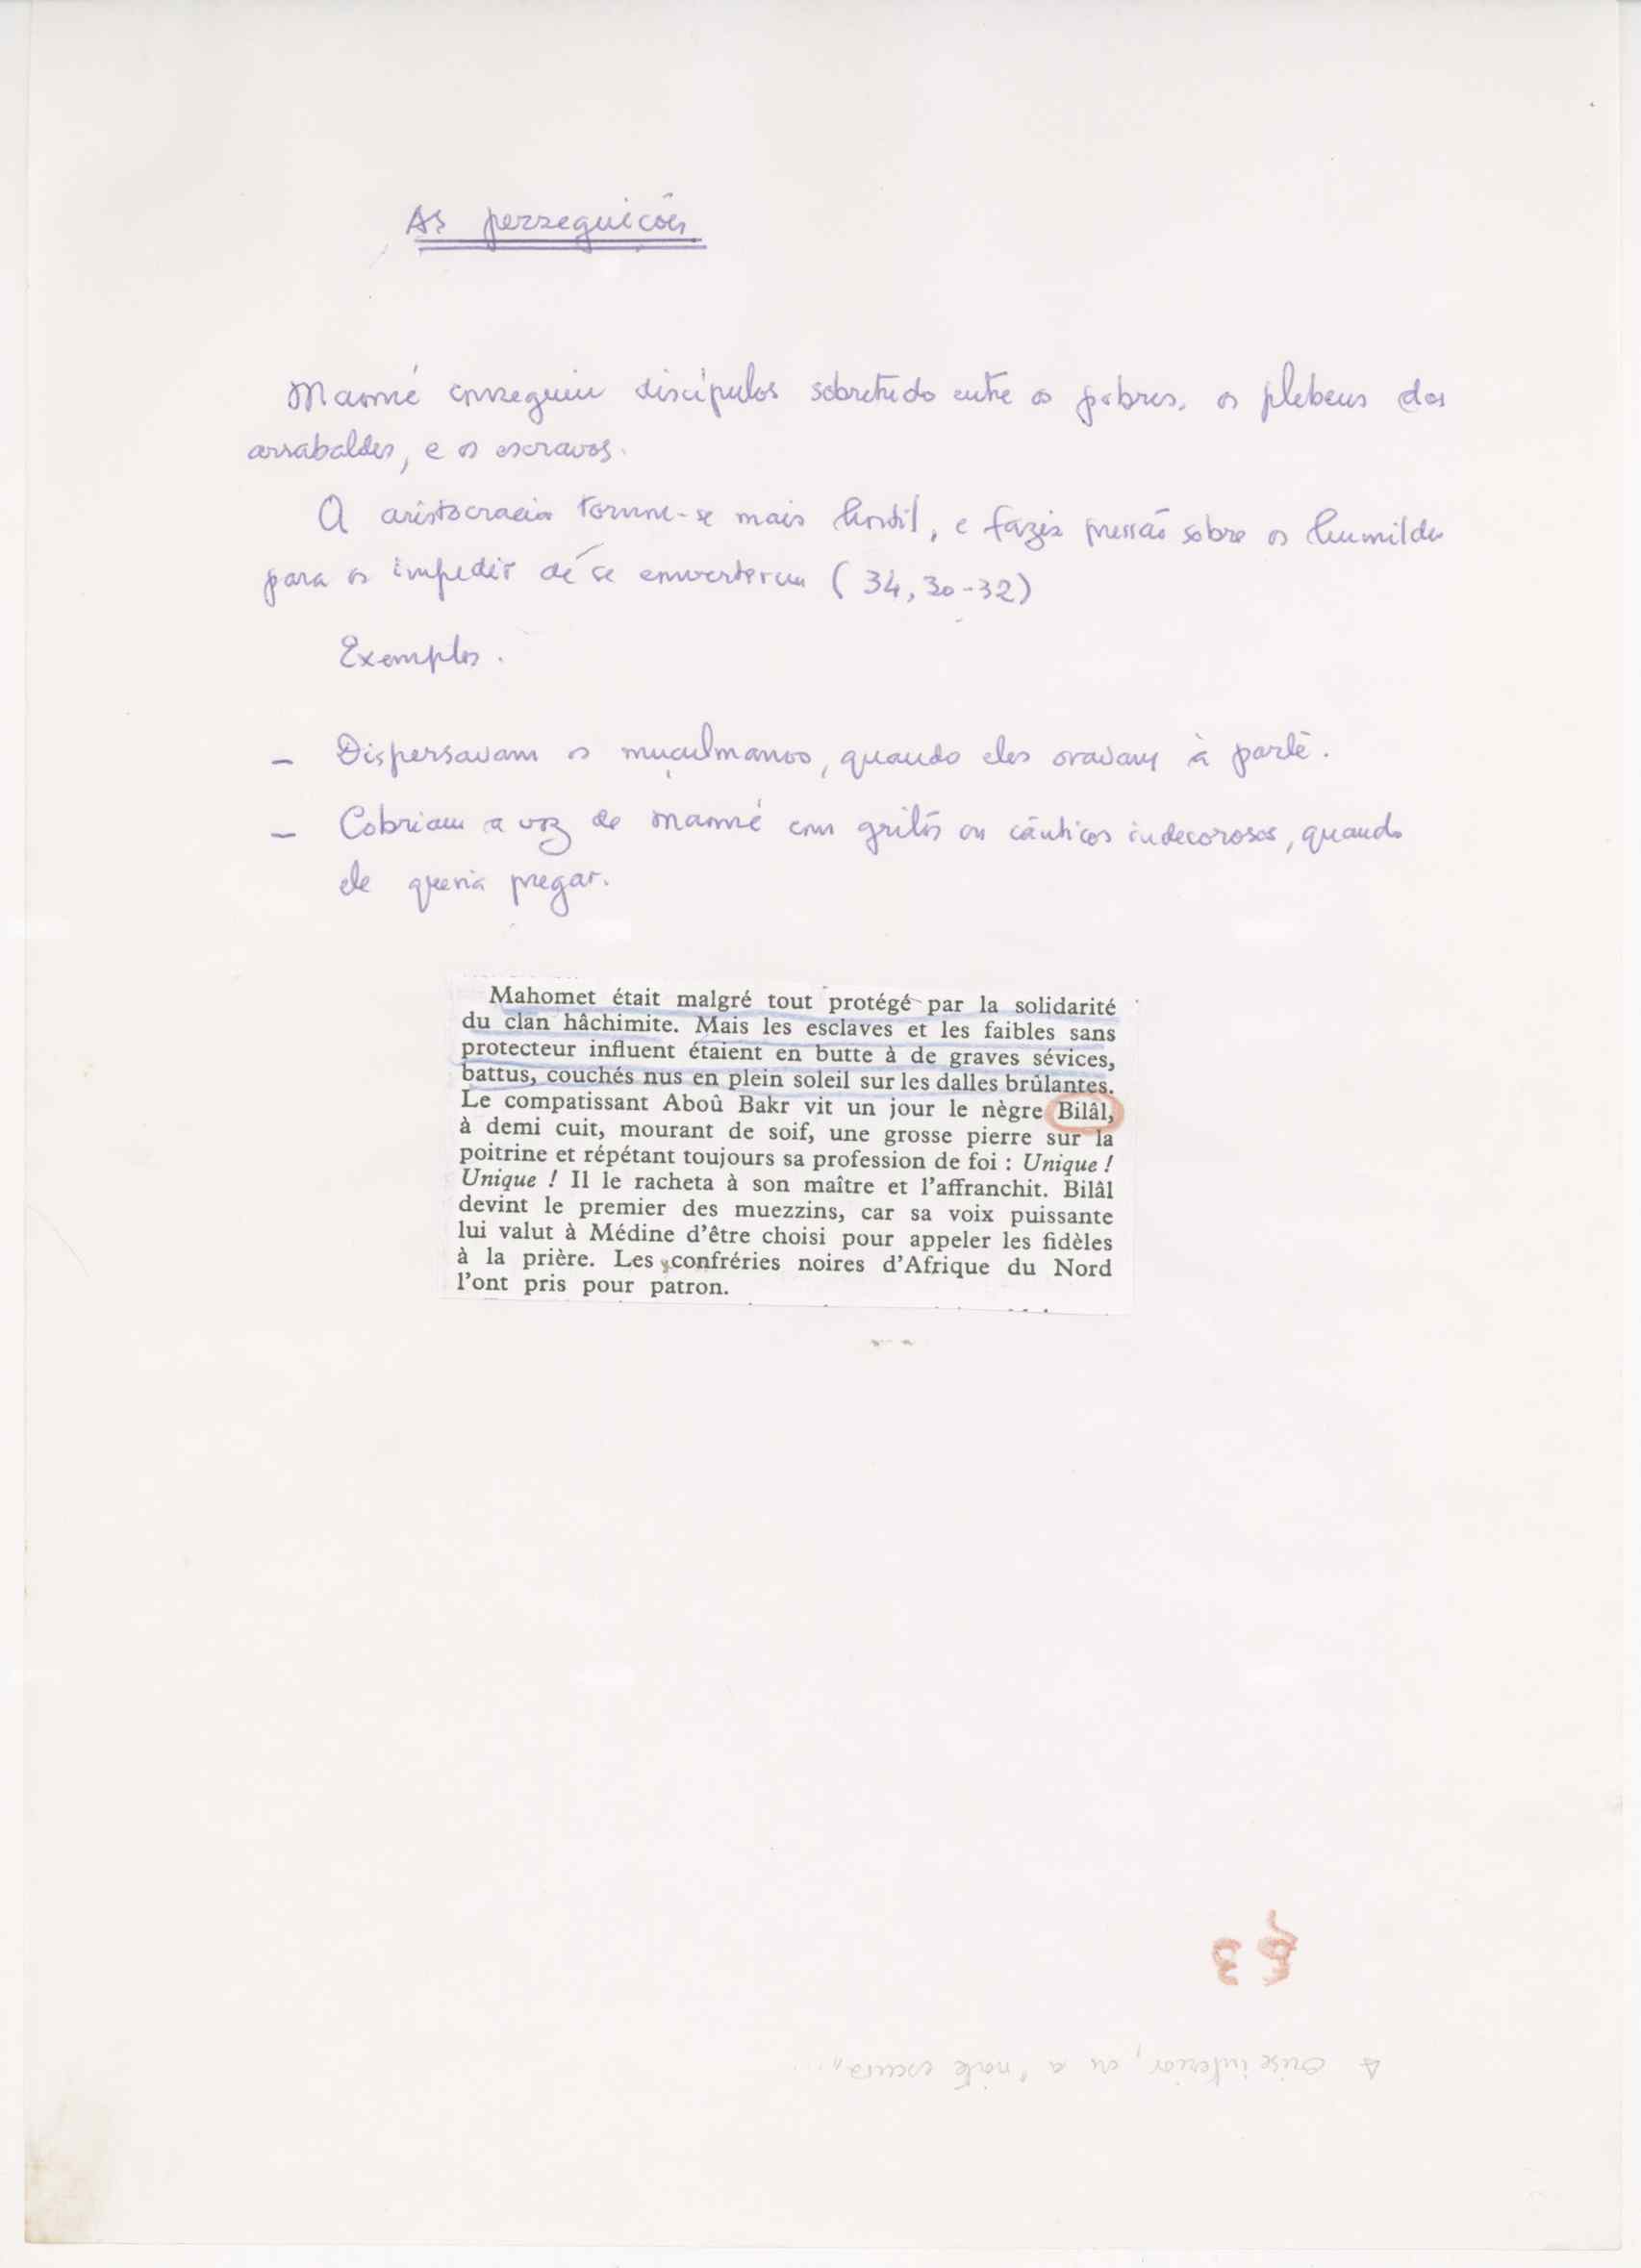 As perseguições
Maomé conseguiu discípulos sobretudo entre os pobres, os plebeus dos
arrabaldes, e os escravos.
A aristocracia tornou-se mais hostil, e fazia pressão sobre os humildes
para os impedir de se converterem (34, 30-32)
Exemplos.
– Dispersavam os muçulmanos, quando eles oravam à parte.
– Cobriam a voz de Maomé com gritos ou cânticos indecorosos, quando
ele queria pregar.
Mahomet était malgré tout protégé par la solidarité
du clan hâchimite. Mais les esclaves et les faibles sans
protecteur influent étaient en butte à de graves sévices,
battus, couchés nus en plein soleil sur les dalles brûlantes.
Le compatissant Aboû Bakr vit un jour le nègre Bilâl,
à demi cuit, mourant de soif, une grosse pierre sur la
poitrine et répétant toujours sa profession de foi : Unique !
Unique ! Il le racheta à son maître et l'affranchit. Bilâl
devint le premier des muezzins, car sa voix puissante
lui valut à Médine d'être choisi pour appeler les fidèles
à la prière. Les confréries noires d'Afrique du Nord
l'ont pris pour patron.
A crise interior, ou a "noite escura"...